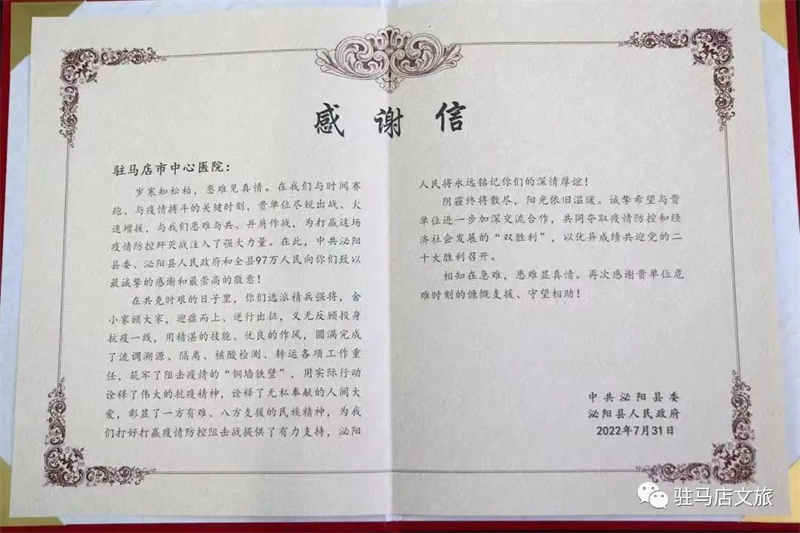 感谢信
驻马店市中心医院：
岁寒知松柏，患难见真情。在我们与时间赛
跑、与疫情搏斗的关键时刻，贵单位尽锐出战、火
速增援，与我们患难与共、并肩作战，为打赢这场
疫情防控歼灭战注入了强大力量。在此，中共泌阳
县委、泌阳县人民政府和全县97万人民向你们致以
最诚挚的感谢和最崇高的敬意！
在共克时艰的日子里，你们选派精兵强将，舍
小家顾大家，迎瘟而上、逆行出征，义无反顾投身
抗疫一线，用精湛的技能、优良的作风，圆满完成
了流调溯源、隔离、核酸检测、转运各项工作重
任，筑牢了阻击疫情的“铜墙铁壁”，用实际行动
诠释了伟大的抗疫精神，诠释了无私奉献的人间大
爱，彰显了一方有难、八方支援的民族精神，为我
们打好打赢疫情防控阻击战提供了有力支持，泌阳
人民将永远铭记你们的深情厚谊！
阴霾终将散尽，阳光依旧温暖。诚挚希望与贵
单位进一步加深交流合作，共同夺取疫情防控和经
济社会发展的“双胜利”，以优异成绩共迎党的二
十大胜利召开。
相知在急难，患难显真情。再次感谢贵单位危
难时刻的慷慨支援、守望相助！
中共泌阳县委
泌阳县人民政府
2022年7月31日
驻马店文旅